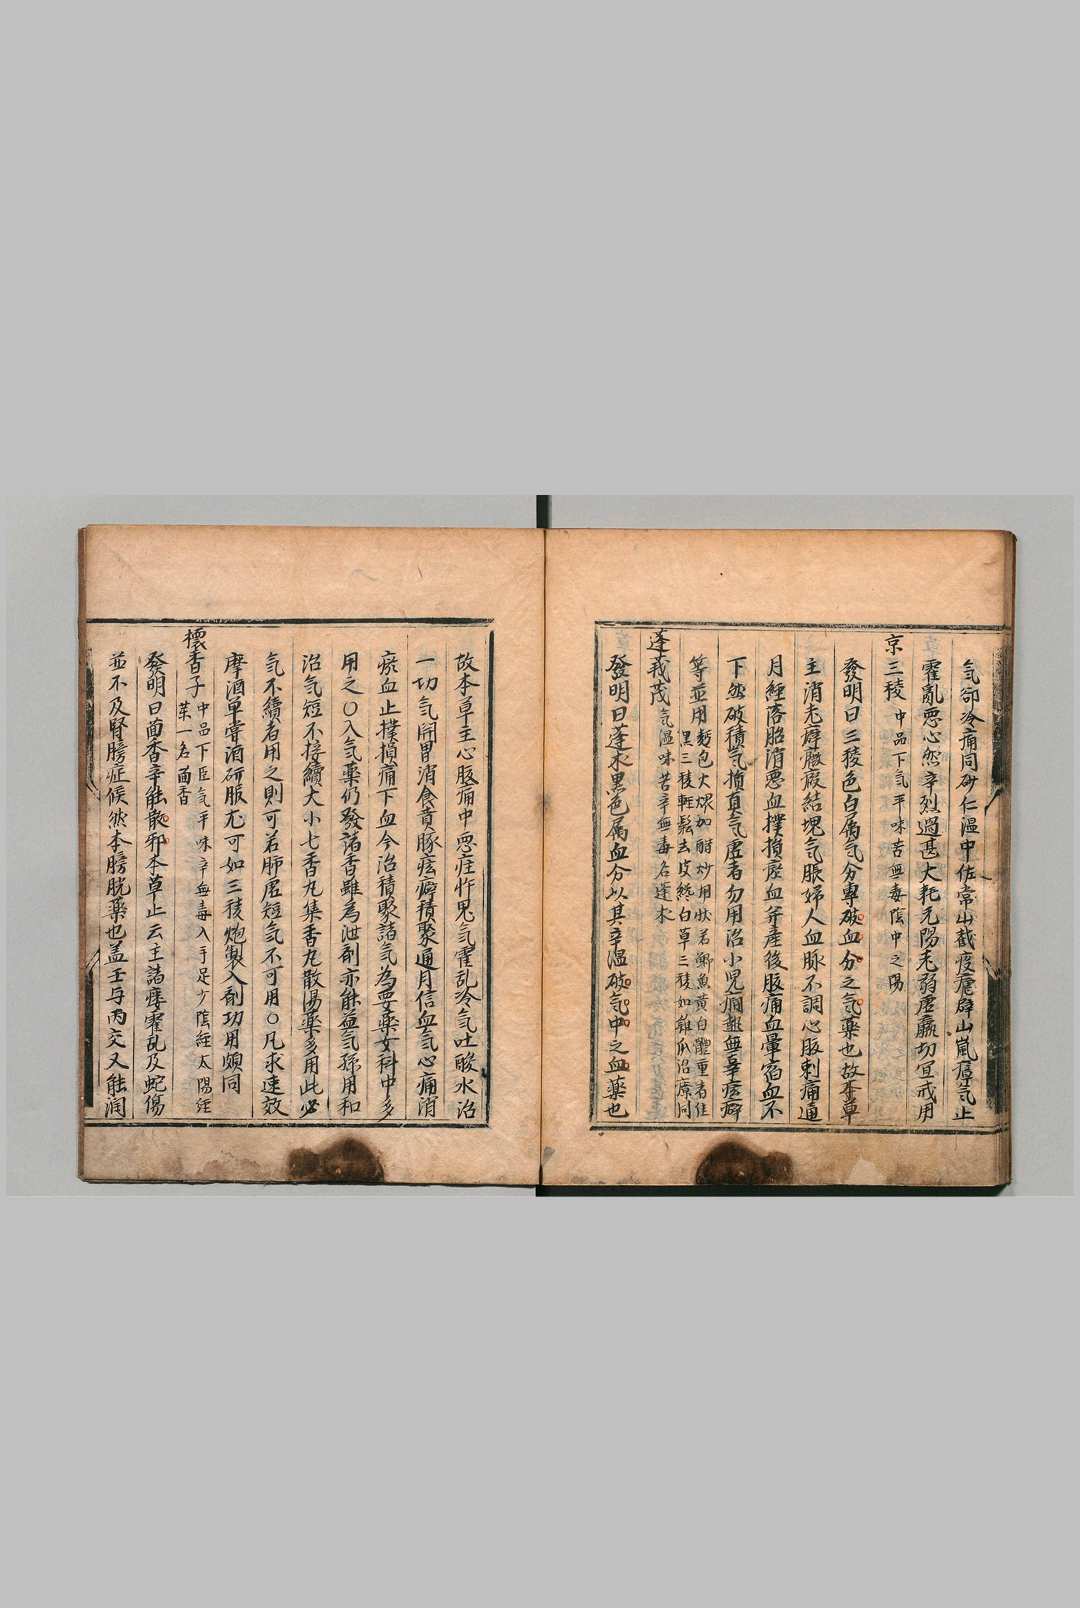 气卻冷痛同砂仁温中佐常山截疫瘧辟山嵐瘴气止
霍亂悪心然辛烈過甚大耗元陽老弱虚羸切宜戒用
京三稜 中品下气平味苦無毒陰中之陽
發明曰三稜色白属气分專破血分之气藥也故本草
主消老癖癥瘕結塊气脹婦人血脉不調心腹刺痛通
月經落胎消悪血撲損瘀血并産後腹痛血暈宿血不
下然破積气損真气虚者勿用治小児癇熱無辜痃癖
等並用 麫包火煨加醋炒用状若鯽魚黄白體重者佳
黒三稜輕鬆去皮絲白草三稜如雞爪治療同
蓬莪茂 气温味苦辛無毒名蓬术
發明曰蓬术黒色属血分以其辛温破气中之血藥也
故本草主心腹痛中悪疰忤鬼气霍乱冷气吐酸水治
一切气開胃消食賁豚痃癖積聚通月信血气心痛消
瘀血止撲損痛下血今治積聚諸气為要藥女科中多
用之〇入气藥仍發諸香雖為泄剤亦能益气孫用和
治气短不接續大小七香丸集香丸散湯藥多用此必
气不續者用之則可若肺虚短气不可用〇凡求速效
摩酒單嘗酒研服尤可如三稜炮製入剤功用頗同
櫰香子 中品下臣气平味辛無毒入手足少陰經太陽經
藥一名茴香
發明曰茴香辛能散邪本草止云主諸瘻霍乱及蛇傷
並不及腎膀症候然本膀胱藥也盖壬与丙交又能潤